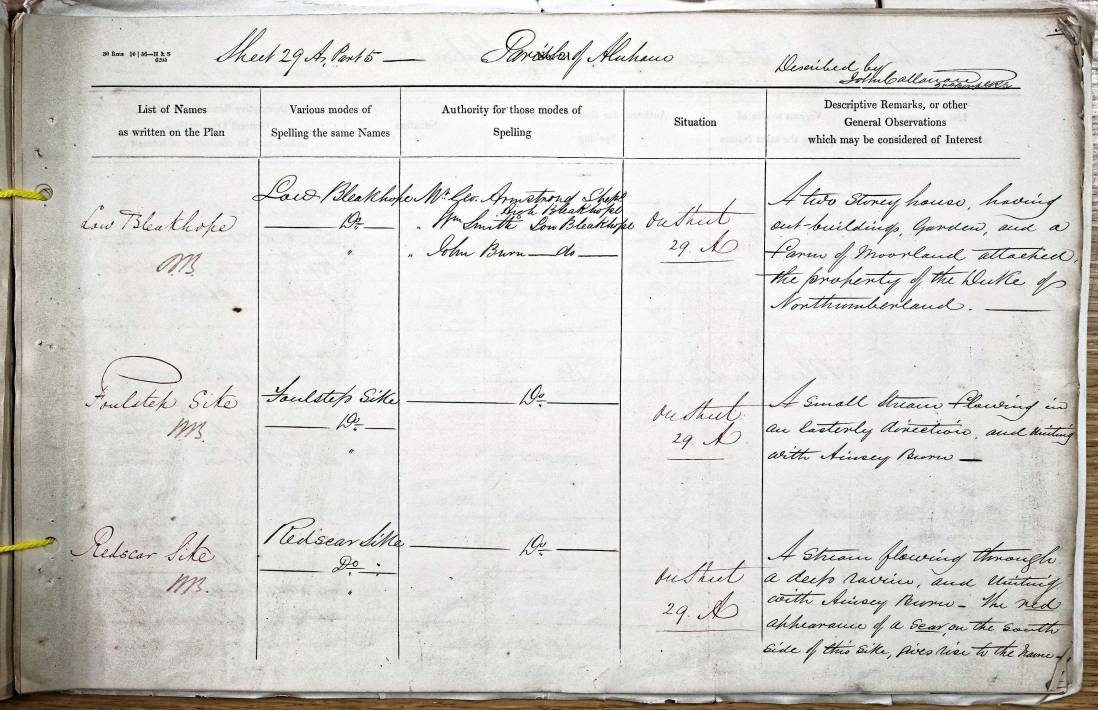 30 Rms 10 | 56—H & S
6205
Sheet 29 A, Part 5 — Parish of Alnham
Described by
John Callanan
List of Names
as written on the Plan
Various modes of
Spelling the same Names
Authority for those modes of
Spelling
Situation
Descriptive Remarks, or other
General Observations
which may be considered of Interest
Low Bleakhope
Low Bleakhope
Do
"
Mr Geo. Armstrong Shepd
High Bleakhope
" Wm Smith Low Bleakhope
" John Burn — do —
On Sheet
29. A
A two storey house, having
out-buildings, Garden, and a
Farm of Moorland attached,
the property of the Duke of
Northumberland. —
Foulstep Sike
Foulstep Sike
Do
"
Do
On Sheet
29. A
A small stream flowing in
an easterly direction, and uniting
with Ainsey Burn —
Redscar Sike
Redscar Sike
Do
"
Do
On Sheet
29. A
A stream flowing through
a deep ravine, and uniting
with Ainsey Burn — The red
appearance of a Scar, on the south
side of this Sike, gives rise to the Name —